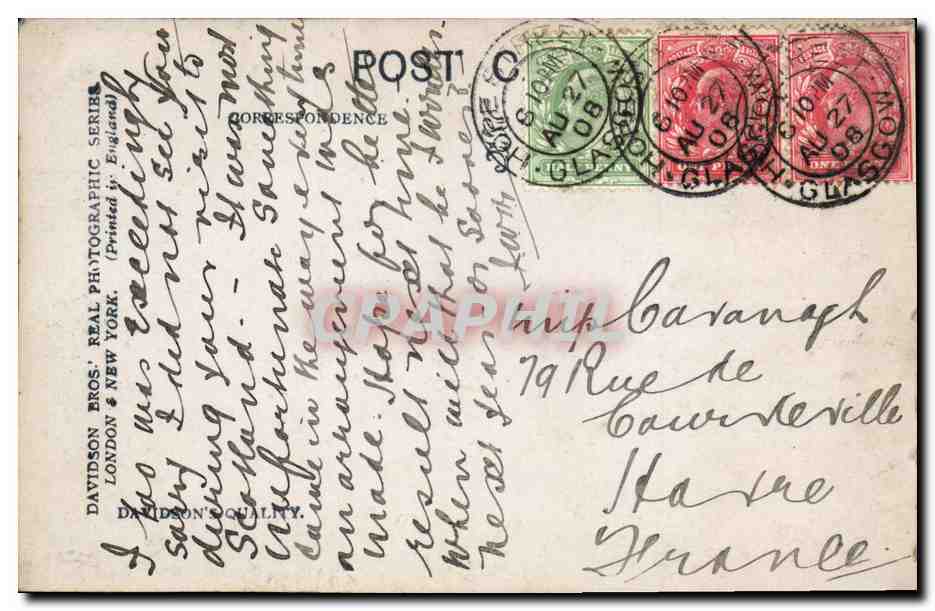 POST C
CORRESPONDENCE
DAVIDSON BROS.' REAL PHOTOGRAPHIC SERIES
LONDON & NEW YORK. (Printed in England)
DAVIDSON'S QUALITY.
I was exceedingly
sorry I did not see you
during your visit to
Scotland - It was most
unfortunate something
came in the way every time
an arrangement was
made. Hope for better
result next time.
When will that be
next year or
Miss Cavanagh
79 Rue de
Courdeville
Havre
France
GLASGOW
6 10 PM
AU 27
08
GLASGOW
6 10 PM
AU 27
08
GLASGOW
6 10 PM
AU 27
08
HALFPENNY
ONE PENNY
ONE
CRAPHIL